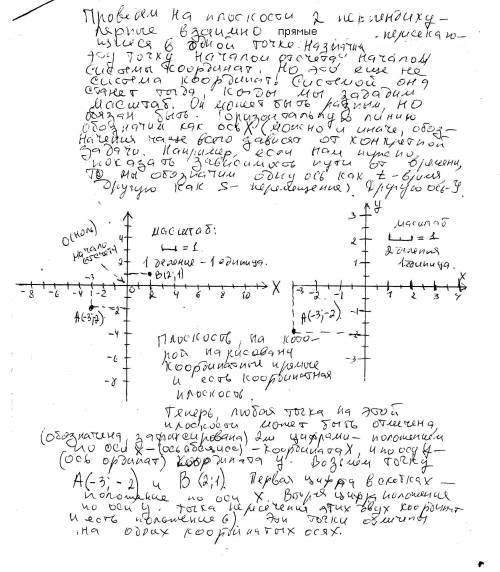 Проведем на плоскости 2 перпендику-
лярные взаимно прямые пересекаю-
щиеся в одной точке. Назначим
эту точку началом отсчета началом
системы координат. Но это еще не
система координат. Системой она
станет тогда, когда мы зададим
масштаб. Он может быть разным, но
обязан быть. Горизонтальную линию
обозначим как ось X (можно и иначе, обоз-
начения чаще всего зависят от конкретной
задачи. Например, если нам нужно,
показать зависимость пути от времени,
то мы обозначим одну ось как t - время
другую как S - перемещение). Другую ось - y.
0 (ноль)
начало
отсчета
масштаб:
= 1
1 деление - 1 единица.
B(2;1)
A(-3;-2)
-8 -6 -4 -3 -2 2 4 6 8 10 X
4
2
-2
-4
-6
-8
y
масштаб
= 1
2 деления
1 единица.
3
2
1
-3 -2 -1 1 2 3 4 x
A(-3;-2)
-2
-3
Плоскость, на кото-
рой нарисованы
координатные прямые
и есть координатная
плоскость.
Теперь, любая точка на этой
плоскости может быть отмечена,
(обозначена, зафиксирована) 2мя цифрами - положением
по оси X - (ось абсцисс) - координата X, и по оси y -
(ось ординат) координата y. Возьмем точку
A(-3; -2) и B(2;1) Первая цифра в скобках -
положение по оси X. Вторая цифра положения
по оси y. Точка пересечения этих двух координат
и есть положение Эти точки отмечены
на обоих координатных осях.